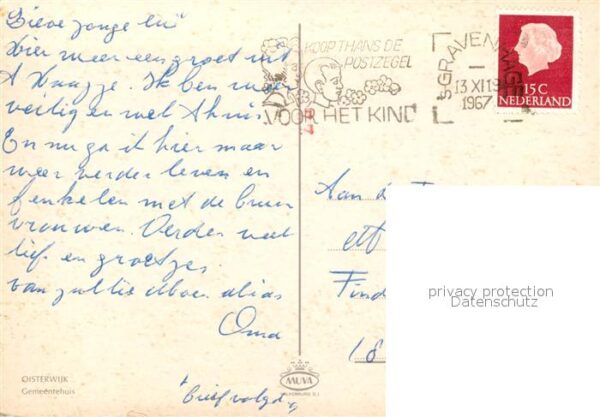 Lieve jonge lui
Hier weer een groet uit
d Haagje. Ik ben weer
veilig en wel thuis.
En nu ga it hier maar
weer verder leven en
met de
vrouwen. Verder veel
liefs en groetjes
van jullie Moer alias
Oma
brief volgt
KOOP THANS DE
POSTZEGEL
VOOR HET KIND
'S GRAVENHAGE
13 XI 19
1967
15 C
NEDERLAND
Aan de
Find
18
privacy protection
Datenschutz
OISTERWIJK
Gemeentehuis
MUVA